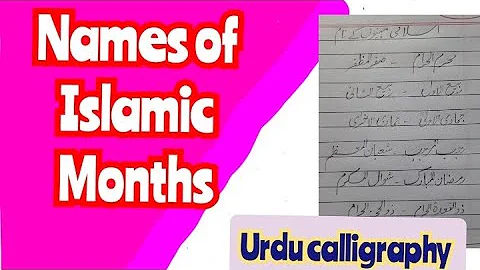 Names of
Islamic
Months
اسلامی مہینوں کے نام
محرم الحرام - صفر المظفر
ربیع الاول - ربیع الثانی
جمادی الاولیٰ - جمادی الاخریٰ
رجب المرجب - شعبان المعظم
رمضان المبارک - شوال المکرم
ذوالقعدۃ الحرام - ذوالحجۃ الحرام
Urdu calligraphy